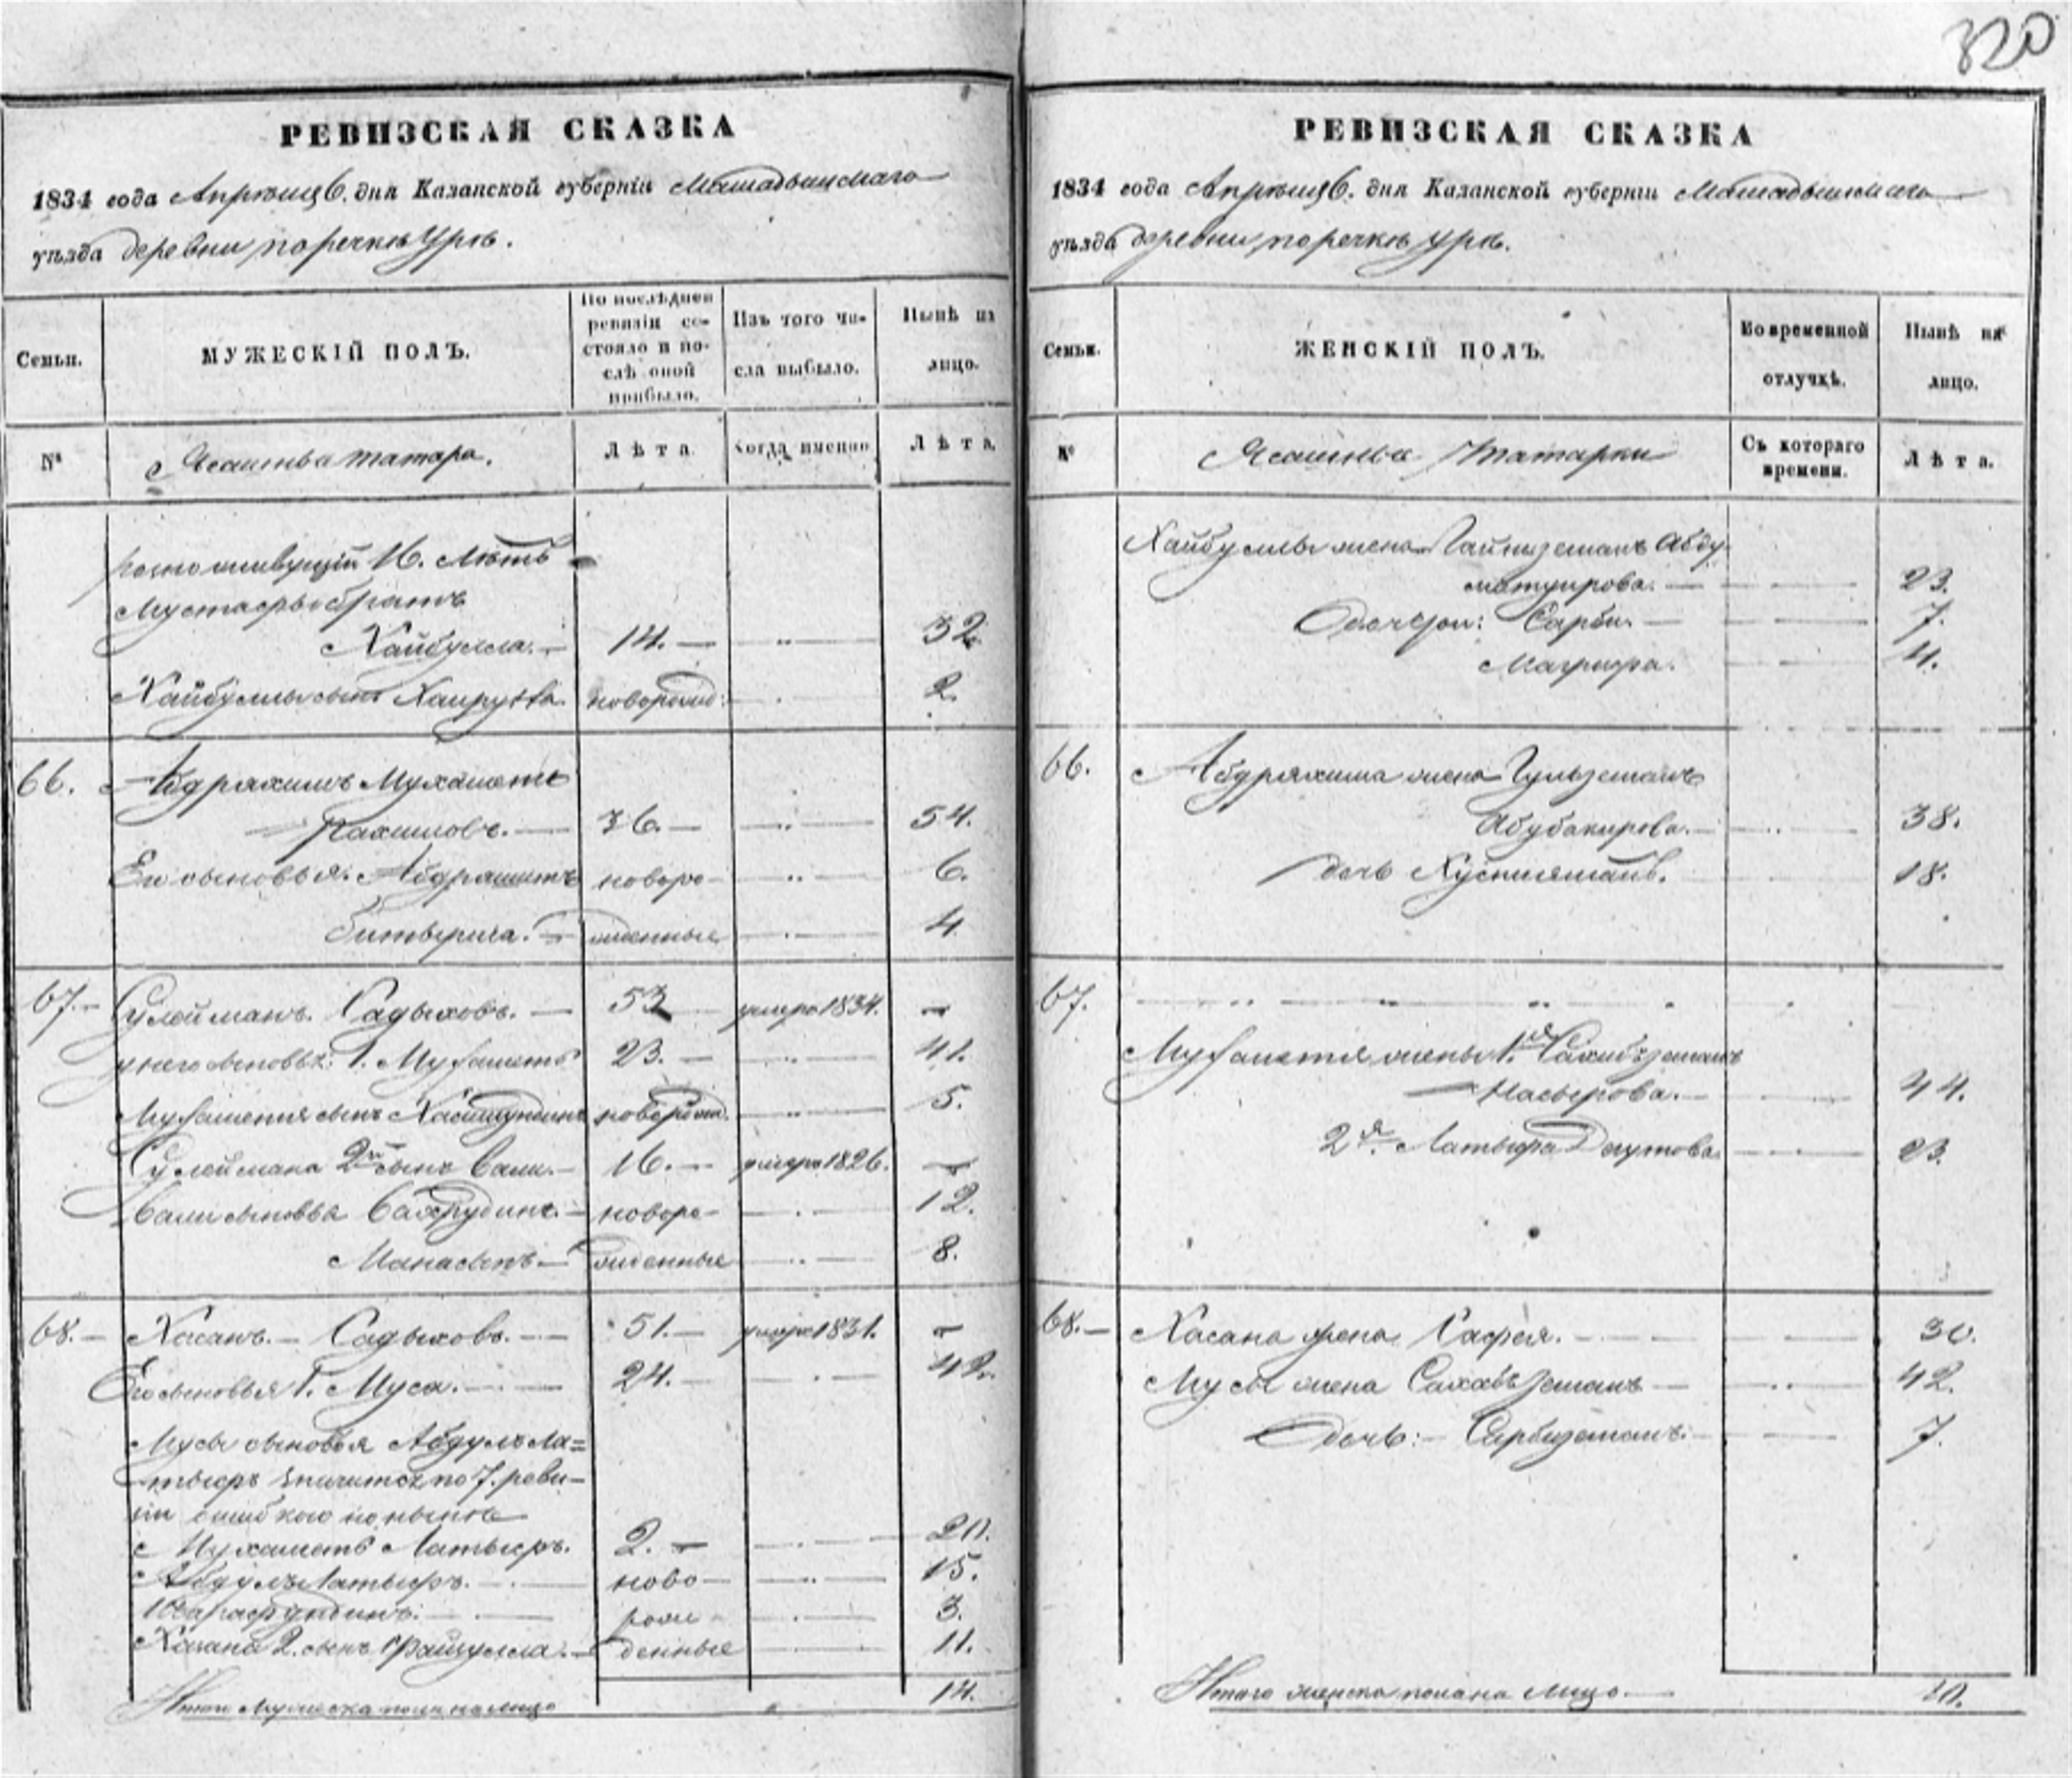 320
РЕВИЗСКАЯ СКАЗКА
1834 года Апреля 6. дня Казанской губерніи Мамадышскаго
уѣзда деревни по речкѣ Урѣ.
Семьи.
МУЖЕСКІЙ ПОЛЪ.
По послѣдней ревизіи состояло и послѣ оной прибыло.
Изъ того числа выбыло.
Нынѣ на лицо.
№
Ясашныя татара.
Лѣта
Когда именно
Лѣта.
16. Лѣтъ
Мустафы братъ
Хайбулла. 14. 32
Хайбуллы сынъ новорожд: 2
66. Абдряхимъ Мухаметъ
Рахимовъ. 36. 54.
Ево сыновья: Абдрашитъ новоро- 6.
жденные 4
67. Сулейманъ Садыковъ. 53 умеръ 1834.
у него сыновья: 1. Мухаметъ 23. 41.
Мухаметя сынъ новорожд. 5.
Сулеймана 2й сынъ Вали. 16. умеръ 1826.
Вали сыновья новоро- 12.
жденные 8.
68. Хасанъ. Садыковъ. 51. умеръ 1831.
Его сыновья 1. Муса. 24. 42.
Мусы сыновья Абдулъ Ла=
тыфъ значится по 7. реви-
зіи ошибкою но нынѣ
Мухаметъ Латыфъ. 2. 20.
Абдулъ Латыфъ. ново 15.
рож 3.
Хасана 2. сынъ денные 11.
Итого мужеска пола на лицо 14.
РЕВИЗСКАЯ СКАЗКА
1834 года Апреля 6. дня Казанской губерніи Мамадышскаго
уѣзда деревни по речкѣ Урѣ.
Семьи.
ЖЕНСКІЙ ПОЛЪ.
Во временной отлучкѣ.
Нынѣ на лицо.
№
Ясашныя Татарки
Съ котораго времени.
Лѣта.
Хайбуллы жена Абду
23.
Дочери: Сарби. 7.
Магруфа. 4.
66. Абдряхима жена Гульземанъ
Абубакирова. 38.
дочь 18.
67.
Мухаметя жены 1я Сахибъземанъ
Насырова. 44.
2я Латыфа Даутова 23.
68. Хасана жена Сафея. 30.
Мусы жена Сахабъ Земанъ 42.
Дочь: Сарбиземанъ. 7.
Итого женска пола на лицо. 10.